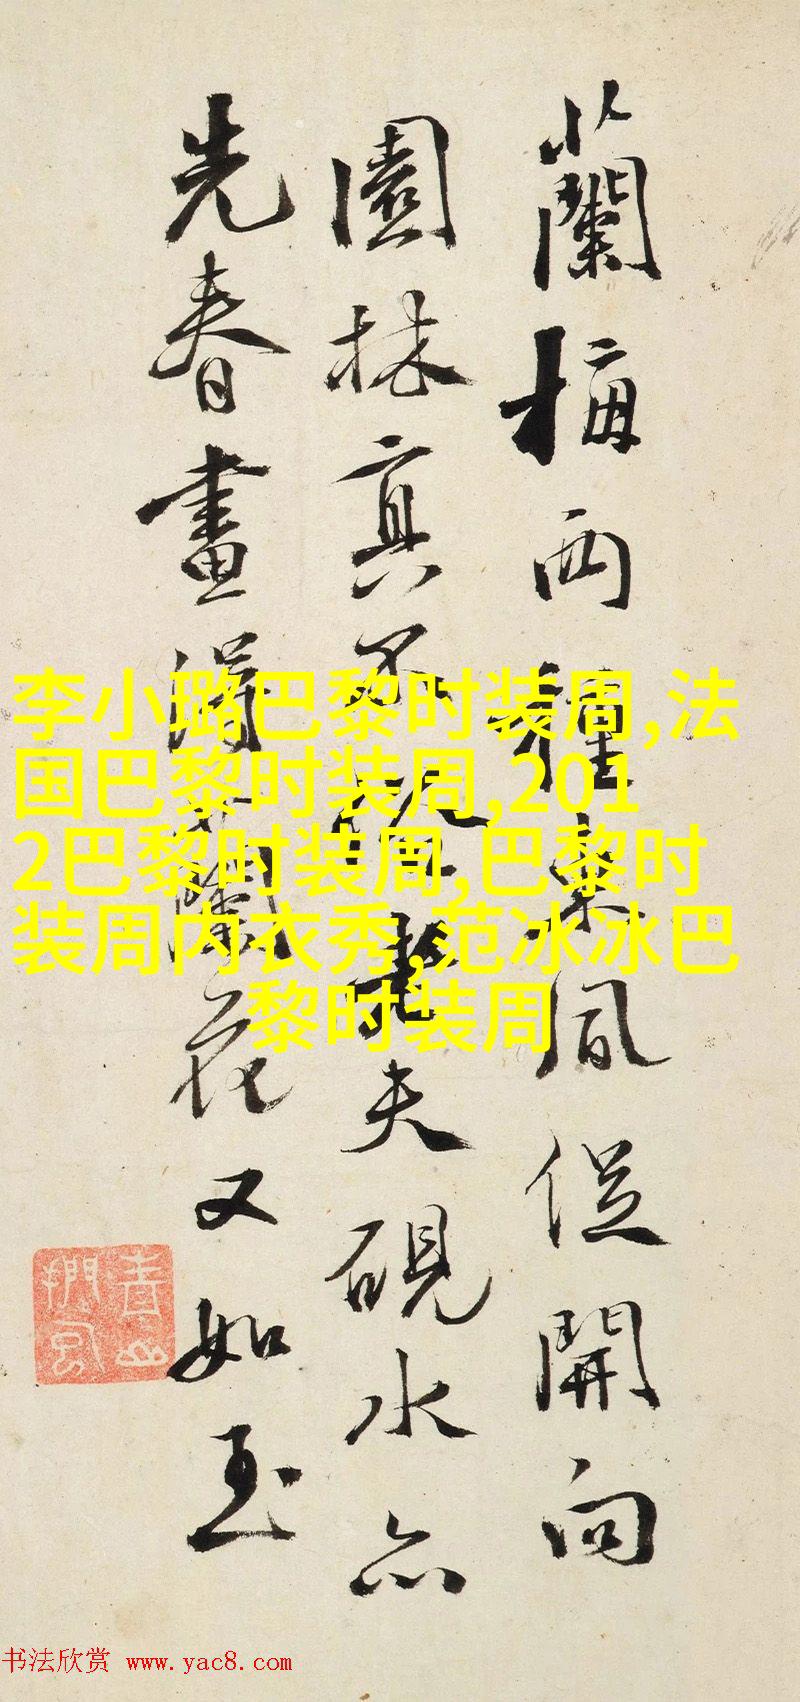 蘭梅两種東風從開向
園林真不夫硯水亦
先春畫得蘭花又如玉
李小璐巴黎时装周,法
国巴黎时装周,201
2巴黎时装周,巴黎时
装周内衣秀,范冰冰巴
黎时装周
书法欣赏 www.yac8.com